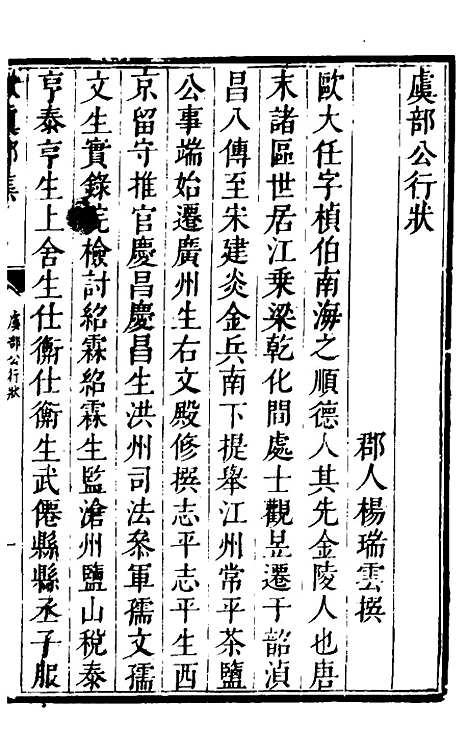 虞部公行狀
郡人楊瑞雲撰
歐大任字楨伯南海之順德人其先金陵人也唐
末諸區世居江乘梁乾化間處士觀昱遷于韶湞
昌八傳至宋建炎金兵南下提舉江州常平茶鹽
公事端始遷廣州生右文殿修撰志平志平生西
京留守推官慶昌慶昌生洪州司法叅軍孺文孺
文生實錄院檢討紹霖紹霖生監滄州鹽山稅泰
亨泰亨生上舍生仕衡仕衡生武僊縣縣丞子服
虞部公行狀
一